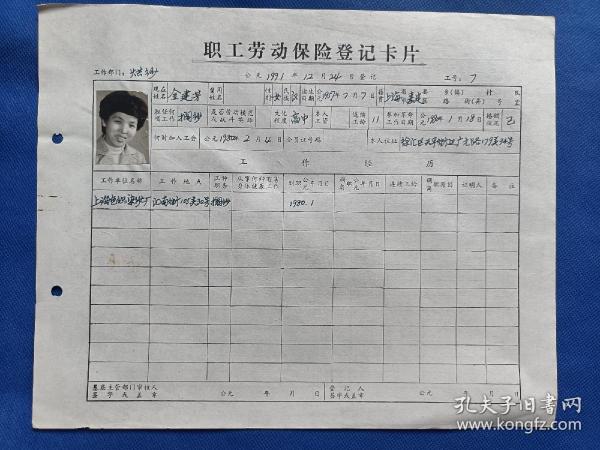 职工劳动保险登记卡片
工作部门: 公元1991年12月24日登记 工号: 7
现在姓名 金建芳 曾用姓名 性别 女 民族 汉 出生日期 公元 年7月7日 籍贯 上海 省市 县区 乡(镇) 村 队 路 街(弄) 号 室
担任何项工作 摇纱 是否劳动模范或战斗英雄 文化程度 高中 本人工资 连续工龄 11 参加革命工作日期 公元1980年1月18日 婚姻状况 已
何时加入工会 公元1982年2月4日 会员证号码 本人住址
工作经历
工作单位名称 工作地点 工种职务 从事何种有害身体健康工作 到职公元年月日 离职公元年月日 连续工龄 调离职原因 证明人 备注
上海色织 摇纱 1980.1
基层主管部门审核人签字或盖章 公元 年 月 日 登记人签字或盖章 公元 年 月 日
孔夫子旧书网
www.kongfz.com